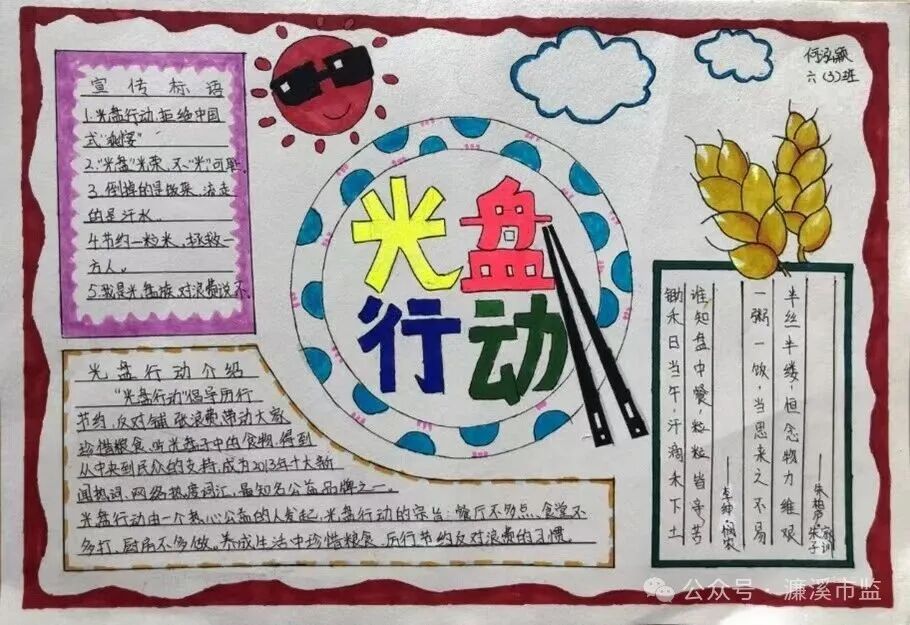 六(3)班
宣传标语
1.光盘行动,拒绝中国
式
2."光盘"光荣、不"光"可耻.
3.倒掉的是饭菜,流走
的是汗水.
4.节约一粒米,拯救一
方人.
5.我是光盘族,对浪费说不.
光盘
行动
锄禾日当午,汗滴禾下土
谁知盘中餐,粒粒皆辛苦
——李绅·悯农
一粥一饭,当思来之不易
半丝半缕,恒念物力维艰
——朱柏庐·朱子家训
光盘行动介绍
"光盘行动"倡导厉行
节约,反对铺张浪费,带动大家
珍惜粮食、吃光盘子中的食物,得到
从中央到民众的支持,成为2013年十大新
闻热词、网络热度词汇,最知名公益品牌之一。
光盘行动由一个热心公益的人发起,光盘行动的宗旨:餐厅不多点、食堂不
多打、厨房不多做。养成生活中珍惜粮食、厉行节约反对浪费的习惯
公众号·濂溪市监